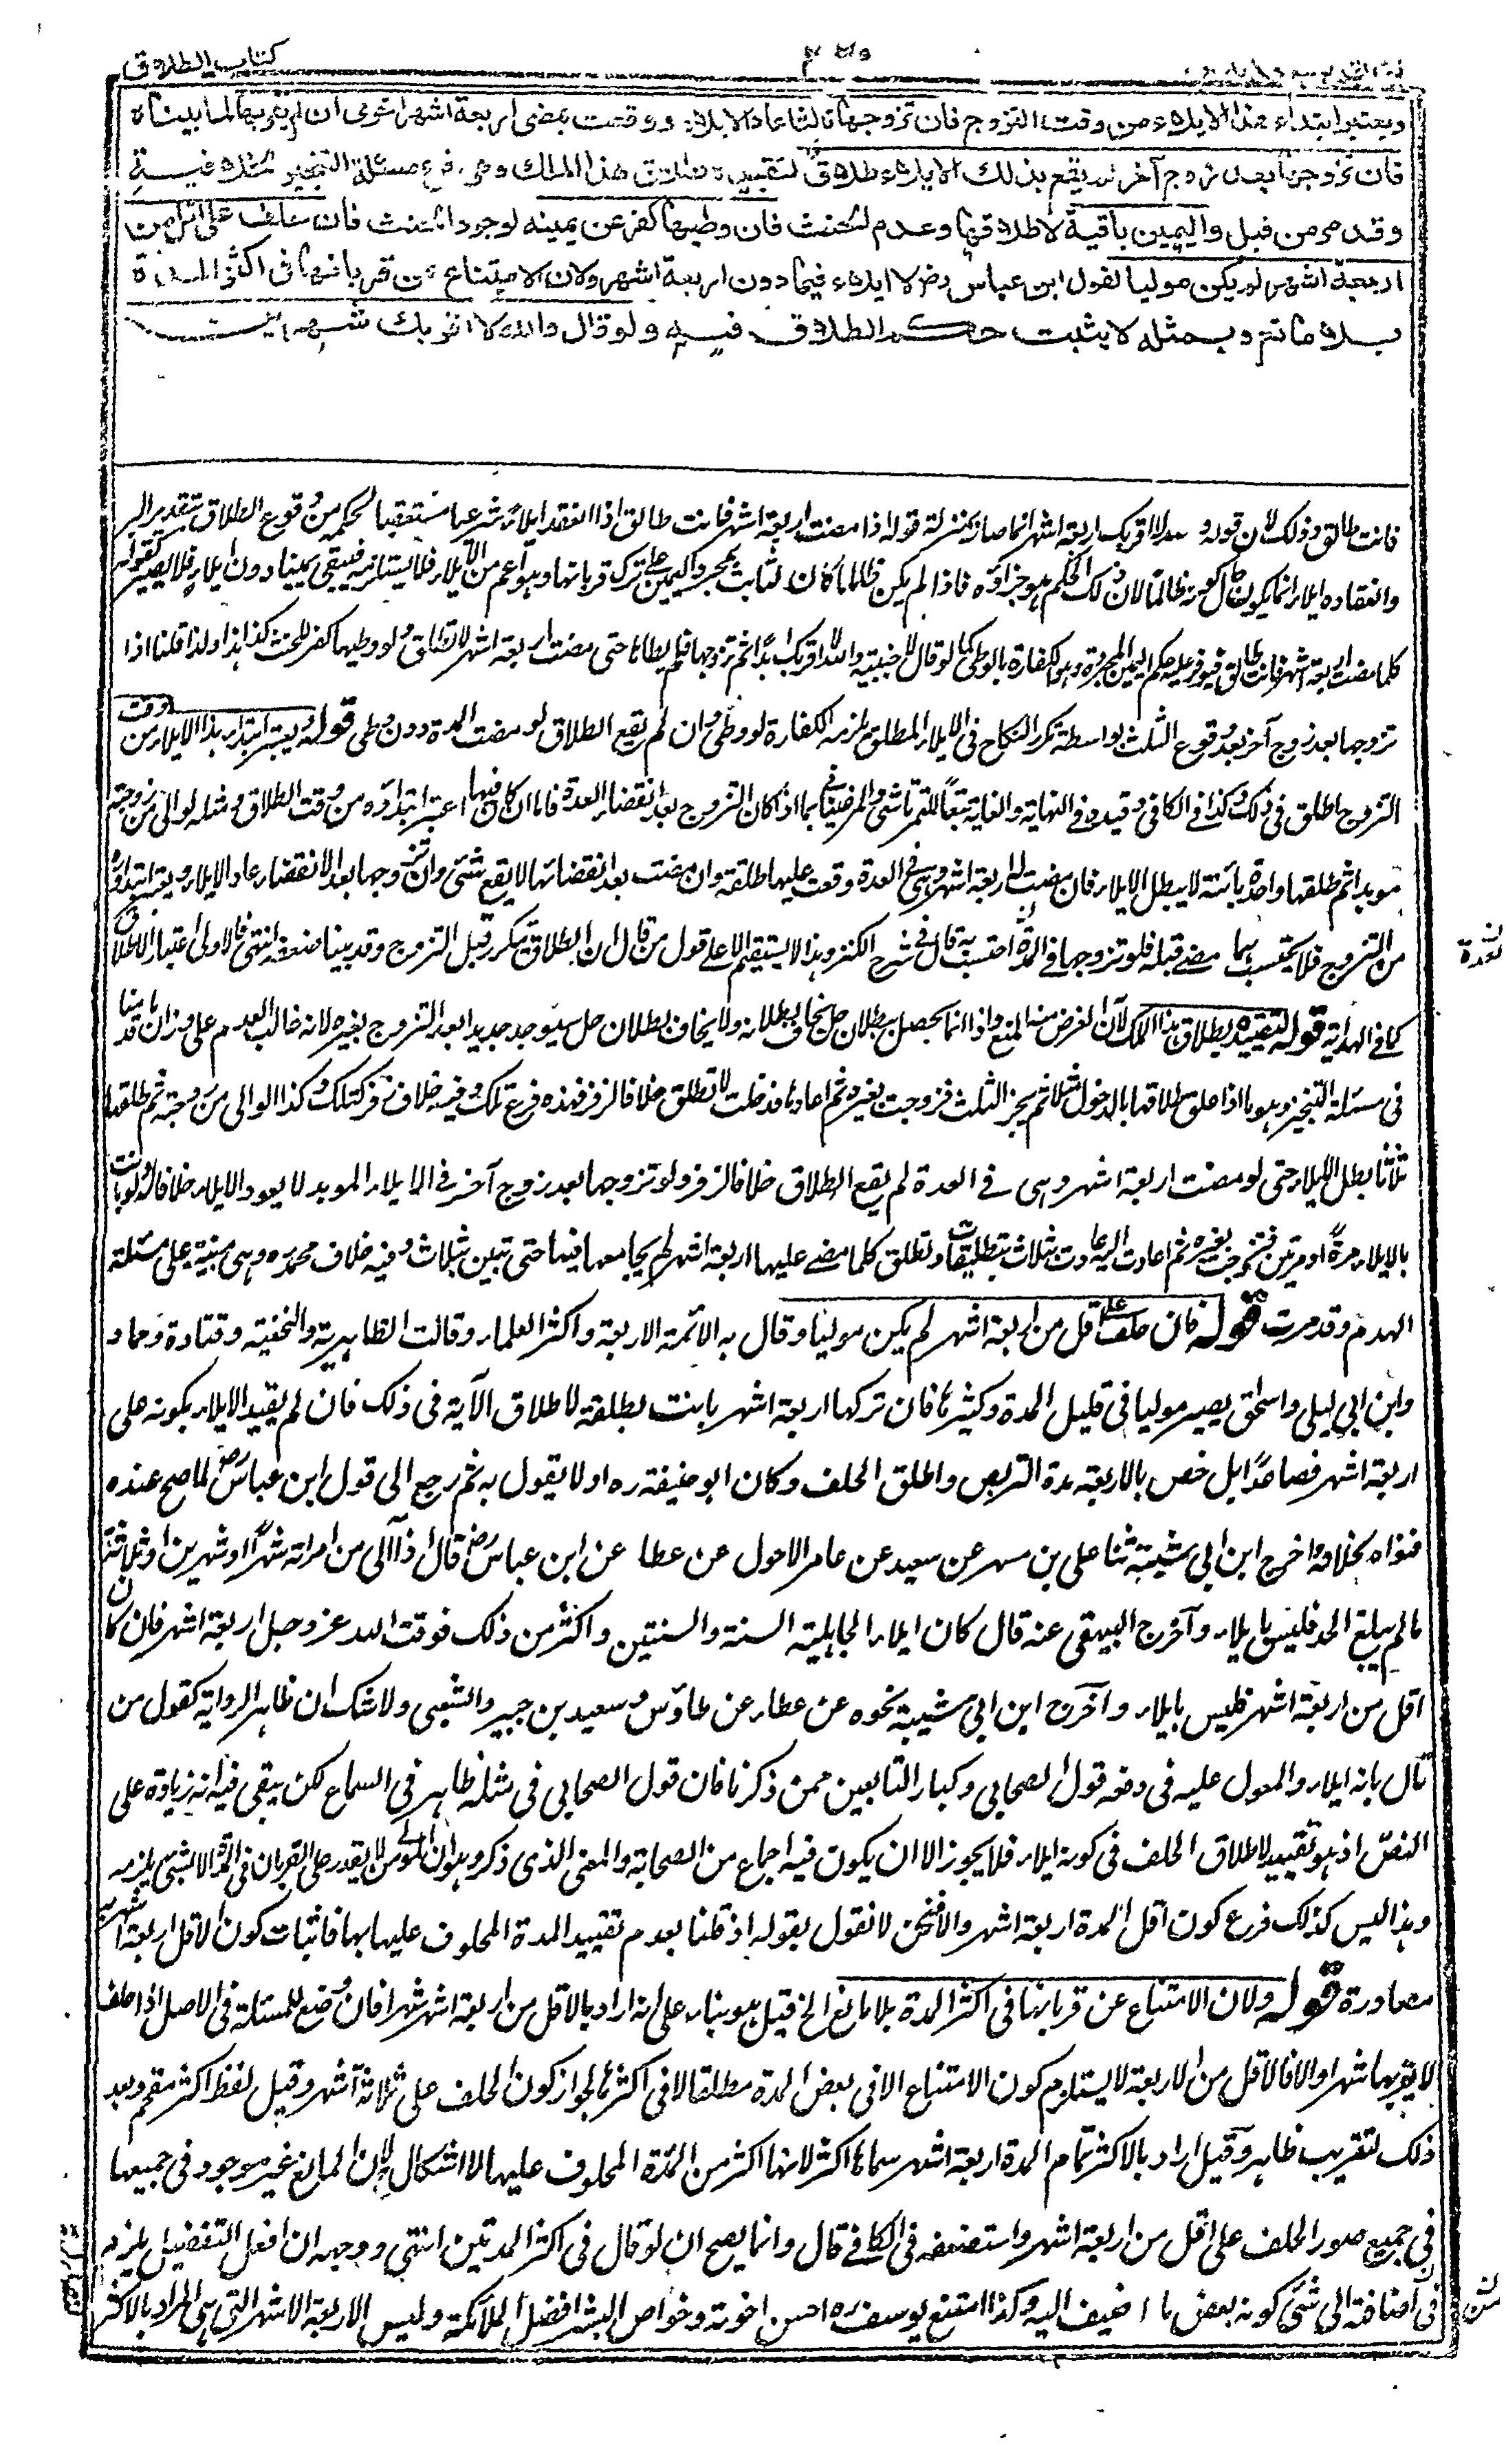 كتاب الطلاق
ويعتبر ابتداء هذا الايلاء من وقت التزوج فان تزوجها ثالثا عاد الايلاء ووقعت بمضى اربعة اشهر اخرى ان لم يقربها لما بيناه
فان تزوجها بعد زوج آخر لم يقع بذلك الايلاء طلاق لتقييده بطلاق هذا الملك وهى فرع مسئلة التنجيز الخلافية
وقد مر من قبل واليمين باقية لاطلاقها وعدم الحنث فان وطيها كفر عن يمينه لوجود الحنث فان حلف على اقل من
اربعة اشهر لم يكن موليا لقول ابن عباس رض لا ايلاء فيما دون اربعة اشهر ولان الامتناع عن قربانها فى اكثر المدة
بلا مانع وبمثله لا يثبت حكم الطلاق فيه ولو قال والله لا اقربك شهرين
فانت طالق وذلك لان قوله والله لا اقربك اربعة اشهر انما صار بمنزلة قوله اذا مضت اربعة اشهر فانت طالق اذا انعقد ايلاء شرعيا مستعقبا لحكمه من وقوع الطلاق بتقدير البر
وانعقاده ايلاء انما يكون حال كونه ظالما لان ذلك الحكم هو جزاؤه فاذا لم يكن ظالما كان الثابت مجرد اليمين على ترك قربانها وهو اعم من الايلاء فلا يستلزمه فيبقى يمينا دون ايلاء فلا يصير كقوله
كلما مضت اربعة اشهر فانت طالق فيوفر عليه حكم اليمين المجردة وهو الكفارة بالوطى كما لو قال لاجنبية والله لا اقربك ابدا ثم تزوجها فلم يطأها حتى مضت اربعة اشهر لا تطلق ولو وطيها كفر للحنث كذا هذا ولذا قلنا اذا
تزوجها بعد زوج آخر بعد وقوع الثلث بواسطة تكرر النكاح فى الايلاء المطلق يلزمه الكفارة لو وطئ وان لم يقع الطلاق لو مضت المدة دون وطى قوله ويعتبر ابتداء هذا الايلاء من وقت
التزوج اطلق فى ذلك وكذا فى الكافى وقيده فى النهاية والغاية تبعا للتمرتاشى والمرغينانى بما اذا كان التزوج بعد انقضاء العدة فاما ان كان فيها اعتبر ابتداؤه من وقت الطلاق ومثله لو آلى من زوجته
موبدا ثم طلقها واحدة بائنة لا يبطل الايلاء فان مضت اربعة اشهر وهى فى العدة وقعت عليها طلقة وان مضت بعد انقضائها لا يقع شئ وان تزوجها بعد الانقضاء عاد الايلاء ويعتبر ابتداؤه
من التزوج فلا يحتسب بما مضى قبله فلو تزوجها فى العدة احتسب به قال فى شرح الكنز وهذا لا يستقيم الا على قول من قال ان الطلاق يتكرر قبل التزوج وقد بينا ضعفه انتهى فالاولى اعتبار الاطلاق
كما فى الهداية قوله لتقييده بطلاق هذا الملك لان الغرض منه المنع وذا انما يحصل ببطلان حل يخاف بطلانه ولا يخاف بطلان حل سيوجد جديدا بعد التزوج بغيره لانه غالب العدم على وزان ما قدمنا
فى مسئلة التنجيز وهو ما اذا علق طلاقها بالدخول مثلا ثم نجز الثلث فزوجت بغيره ثم اعادها فدخلت لا تطلق خلافا لزفر فهذه فرع تلك وفيه خلاف زفر كتلك وكذا لو آلى من زوجته ثم طلقها
ثلاثا بطل الايلاء حتى لو مضت اربعة اشهر وهى فى العدة لم يقع الطلاق خلافا لزفر ولو تزوجها بعد زوج آخر فى الايلاء الموبد لا يعود الايلاء خلافا له ولو بانت
بالايلاء مرة او مرتين فتزوجت بغيره ثم اعادت اليه عادت بثلاث تطليقات وتطلق كلما مضى عليها اربعة اشهر لم يجامعها فيها حتى تبين بثلاث وفيه خلاف محمد ره وهى مبنية على مسئلة
الهدم وقد مرت قوله فان حلف على اقل من اربعة اشهر لم يكن موليا وقال به الائمة الاربعة واكثر العلماء وقالت الظاهرية والنخعية وقتادة وحماد
وابن ابى ليلى واسحق يصير موليا فى قليل المدة وكثيرها فان تركها اربعة اشهر بانت بطلقة لاطلاق الآية فى ذلك فان لم يقيد الايلاء بكونه على
اربعة اشهر فصاعدا بل خص بالاربعة مدة التربص واطلق الحلف وكان ابو حنيفة ره اولا يقول به ثم رجع الى قول ابن عباس رض لما صح عنده
فتواه بخلافه واخرج ابن ابى شيبة ثنا على بن مسهر عن سعيد عن عامر الاحول عن عطا عن ابن عباس رض قال اذا آلى من امراته شهرا او شهرين او ثلاثة
ما لم يبلغ الحد فليس بايلاء وآخرج البيهقى عنه قال كان ايلاء الجاهلية السنة والسنتين واكثر من ذلك فوقت الله عز وجل اربعة اشهر فان كان
اقل من اربعة اشهر فليس بايلاء وآخرج ابن ابى شيبة نحوه عن عطاء عن طاؤس وسعيد بن جبير والشعبى ولا شك ان ظاهر الرواية كقول من
قال بانه ايلاء والمعول عليه فى دفعه قول الصحابى وكبار التابعين ممن ذكرنا فان قول الصحابى فى مثله ظاهر فى السماع لكن يبقى فيه انه زيادة على
النص اذ هو تقييد لاطلاق الحلف فى كونه ايلاء فلا يجوز الا ان يكون فيه اجماع من الصحابة والمعنى الذى ذكر وهو ان المولى من لا يقدر على القربان فى المدة الا بشئ يلزمه
وهذا ليس كذلك فرع كون اقل المدة اربعة اشهر والا فنحن لا نقول بقوله اذ قلنا بعدم تقييد المدة المحلوف عليها بها فاثبات كون الاقل اربعة اشهر به
مصادرة قوله ولان الامتناع عن قربانها فى اكثر المدة بلا مانع الخ قيل هو بناء على انه اراد بالاقل من اربعة اشهر شهرا فان وضع المسئلة فى الاصل اذا حلف
لا يقربها شهرا والا فالاقل من الاربعة لا يستلزم كون الامتناع الا فى بعض المدة مطلقا لا فى اكثرها لجواز كون الحلف على ثلاثة اشهر وقيل لفظ اكثر مقحم وبعد
ذلك لتقريب ظاهر وقيل اراد بالاكثر تمام المدة اربعة اشهر سماها اكثر لانها اكثر من المدة المحلوف عليها لا اشكال لان المانع غير موجود فى جميعها
فى جميع صور الحلف على اقل من اربعة اشهر واستضعفه فى الكافى قال وانما يصح ان لو قال فى اكثر المدتين انتهى ووجهه ان افعل التفضيل يلزمه
فى اضافته الى شئ كونه بعض ما اضيف اليه وكذا امتنع يوسف ره احسن اخوته وخواص البشر افضل الملائكة وليس الاربعة الاشهر التى هى المراد بالاكثر